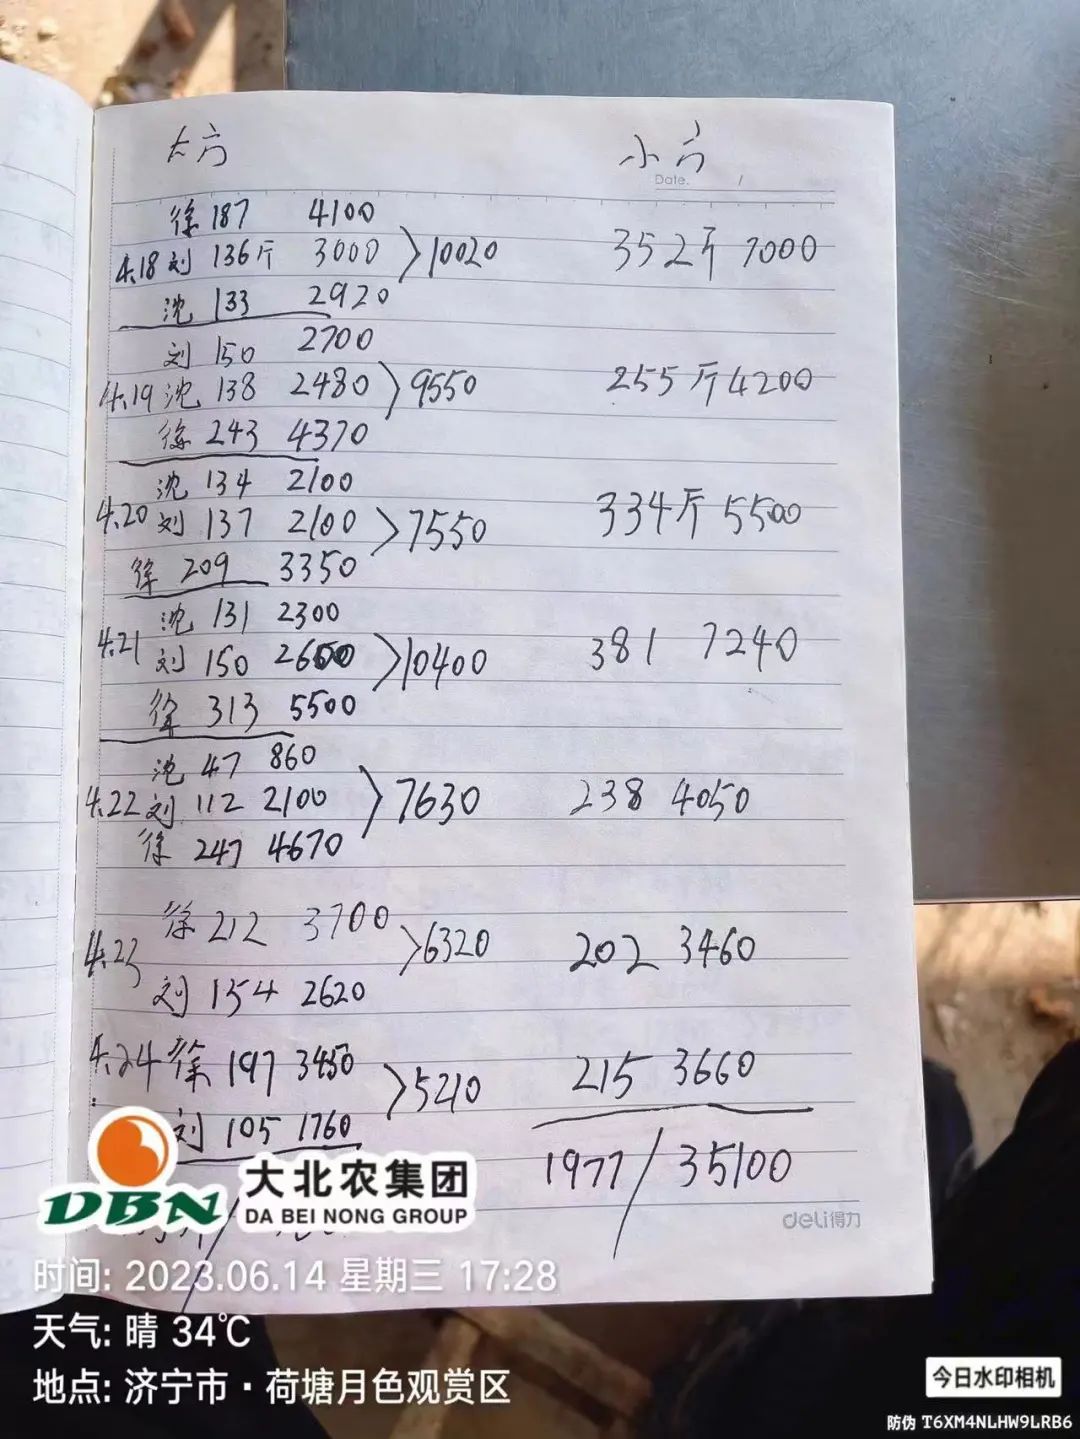 大方 小方
Date. /
徐 187 4100
4.18 刘 136斤 3000 >10020 352斤 7000
沈 133 2920
刘 150 2700
4.19 沈 138 2480 >9550 255斤 4200
徐 243 4370
沈 134 2100
4.20 刘 137 2100 >7550 334斤 5500
徐 209 3350
沈 131 2300
4.21 刘 150 2600 >10400 381 7240
徐 313 5500
沈 47 860
4.22 刘 112 2100 >7630 238 4050
徐 247 4670
徐 212 3700
4.23 >6320 202 3460
刘 154 2620
4.24 徐 197 3450 >5210 215 3660
刘 105 1760
1977 / 35100
deli得力
DBN 大北农集团
DA BEI NONG GROUP
时间: 2023.06.14 星期三 17:28
天气: 晴 34℃
地点: 济宁市·荷塘月色观赏区
今日水印相机
防伪 T6XM4NLHW9LRB6